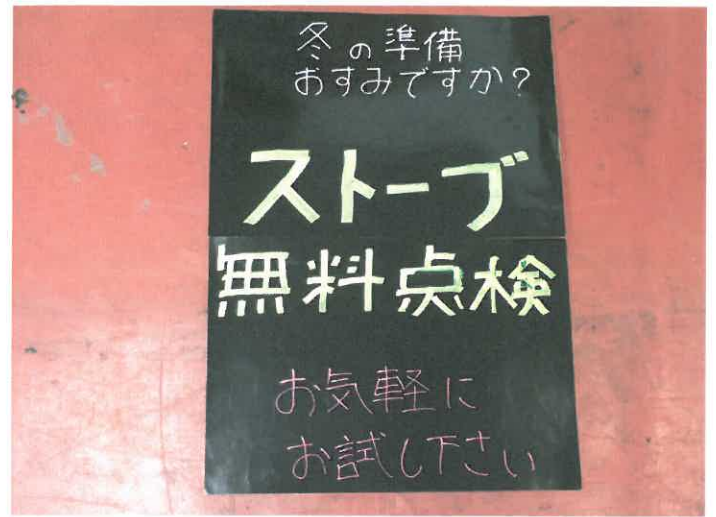 冬の準備
おすみですか?
ストーブ
無料点検
お気軽に
お試し下さい